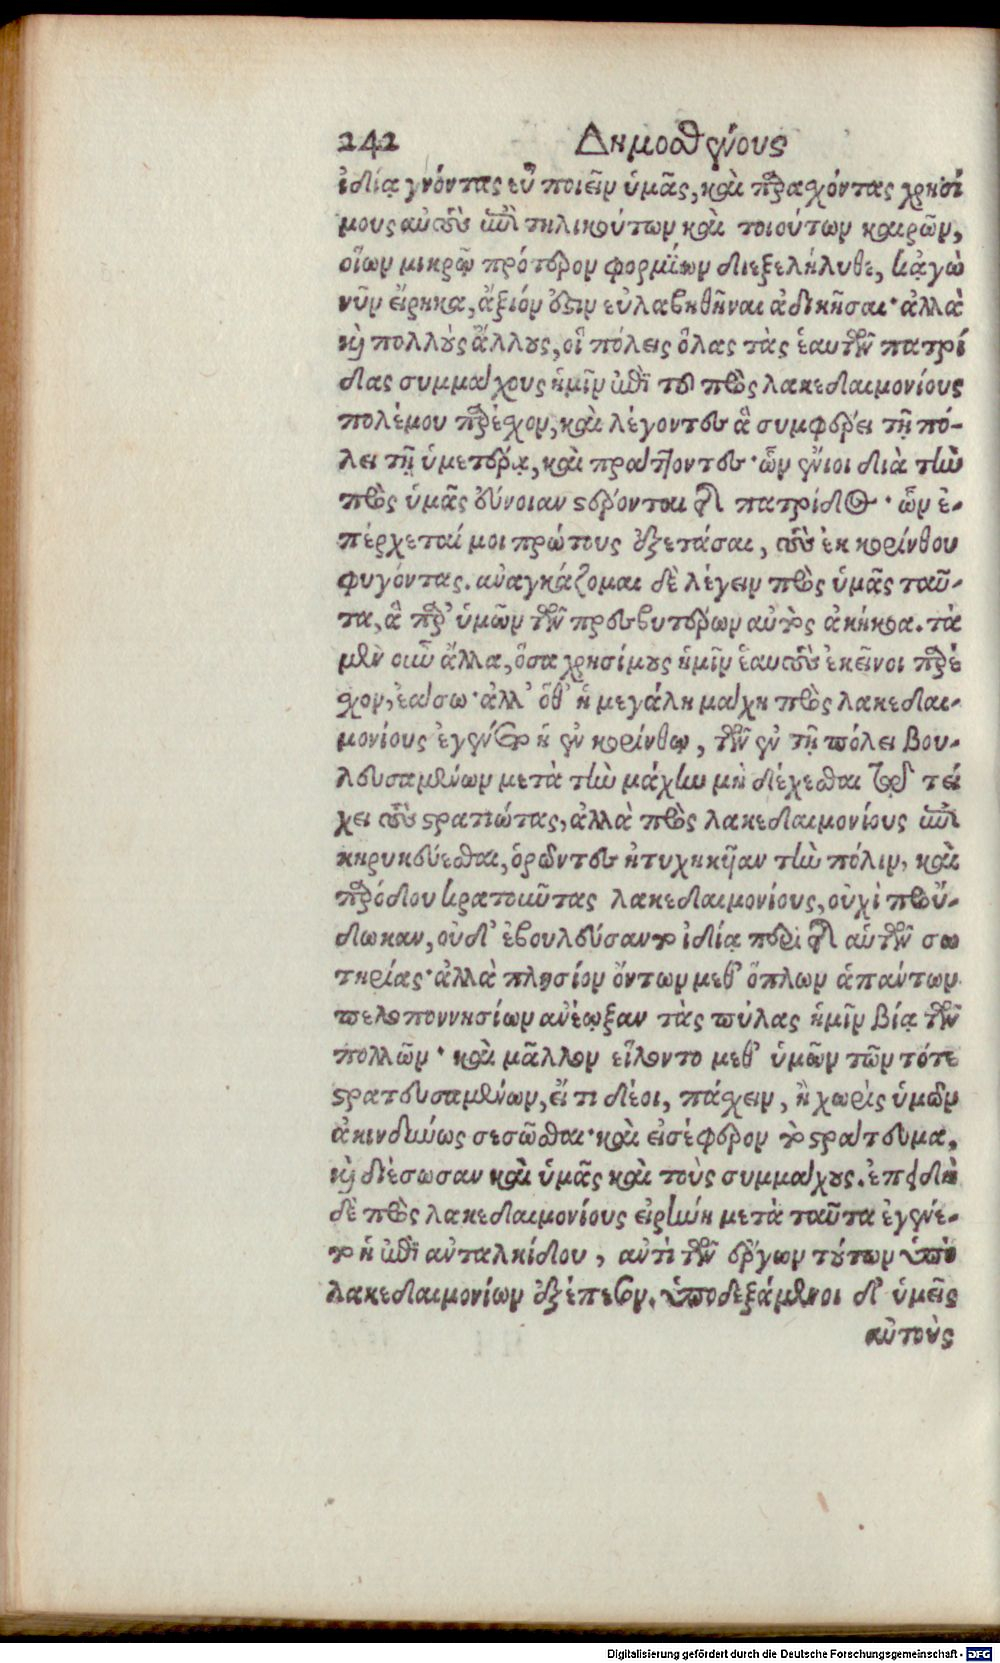 242 Δημοσθένους
ἰδίᾳ γνόντας εὖ ποιεῖν ὑμᾶς, καὶ παρασχόντας χρησί
μους αὑτοὺς ἐπὶ τηλικούτων καὶ τοιούτων καιρῶν,
οἵων μικρῷ πρότερον φορμίων διεξελήλυθε, κἀγὼ
νῦν εἴρηκα, ἄξιόν ἐστιν εὐλαβηθῆναι ἀδικῆσαι· ἀλλὰ
καὶ πολλοὺς ἄλλους, οἳ πόλεις ὅλας τὰς ἑαυτῶν πατρί
δας συμμάχους ἡμῖν ἐπὶ τοῦ πρὸς λακεδαιμονίους
πολέμου παρέσχον, καὶ λέγοντες ἃ συμφέρει τῇ πό-
λει τῇ ὑμετέρᾳ, καὶ πράττοντες· ὧν ἔνιοι διὰ τὴν
πρὸς ὑμᾶς εὔνοιαν στέρονται τῆς πατρίδος· ὧν ἐ-
πέρχεταί μοι πρώτους ἐξετάσαι, τοὺς ἐκ κορίνθου
φυγόντας. ἀναγκάζομαι δὲ λέγειν πρὸς ὑμᾶς ταῦ-
τα, ἃ παρ' ὑμῶν τῶν πρεσβυτέρων αὐτὸς ἀκήκοα. τὰ
μὲν οὖν ἄλλα, ὅσα χρησίμους ἡμῖν ἑαυτοὺς ἐκεῖνοι παρέ
σχον, ἐάσω· ἀλλ' ὅθ' ἡ μεγάλη μάχη πρὸς λακεδαι-
μονίους ἐγένετο ἡ ἐν κορίνθῳ, τῶν ἐν τῇ πόλει βου-
λευσαμένων μετὰ τὴν μάχην μὴ δέχεσθαι τῷ τεί
χει τοὺς στρατιώτας, ἀλλὰ πρὸς λακεδαιμονίους ἐπι
κηρυκεύεσθαι, ὁρῶντες ἠτυχηκῆαν τὴν πόλιν, καὶ
παρόδου κρατοῦντας λακεδαιμονίους, οὐχὶ προὔ-
δωκαν, οὐδ' ἐβουλεύσαντο ἰδίᾳ περὶ τῆς αὑτῶν σω
τηρίας· ἀλλὰ πλησίον ὄντων μεθ' ὅπλων ἁπάντων
πελοποννησίων ἀνέῳξαν τὰς πύλας ἡμῖν βίᾳ τῶν
πολλῶν· καὶ μᾶλλον εἵλοντο μεθ' ὑμῶν τῶν τότε
στρατευσαμένων, εἴ τι δέοι, πάσχειν, ἢ χωρὶς ὑμῶν
ἀκινδύνως σεσῶσθαι· καὶ εἰσέφερον τὸ στράτευμα,
καὶ διέσωσαν καὶ ὑμᾶς καὶ τοὺς συμμάχους. ἐπειδὴ
δὲ πρὸς λακεδαιμονίους εἰρήνη μετὰ ταῦτα ἐγένε-
το ἡ ἐπὶ ἀνταλκίδου, ἀντὶ τῶν ἔργων τούτων ὑπὸ
λακεδαιμονίων ἐξέπεσον. ὑποδεξάμενοι δ' ὑμεῖς
αὐτοὺς
Digitalisierung gefördert durch die Deutsche Forschungsgemeinschaft - DFG